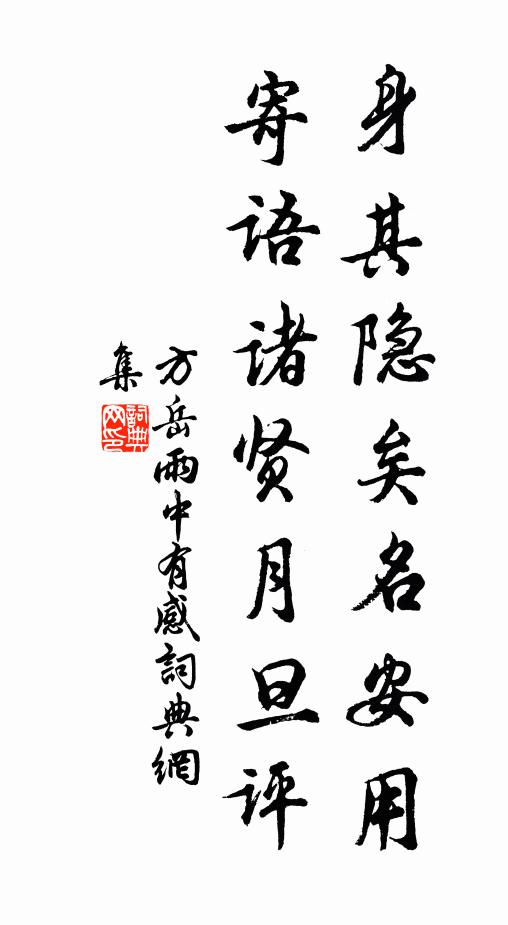 身其隐矣名安用
寄语诸贤月旦评
方岳雨中有感词典網
集
詞典網印